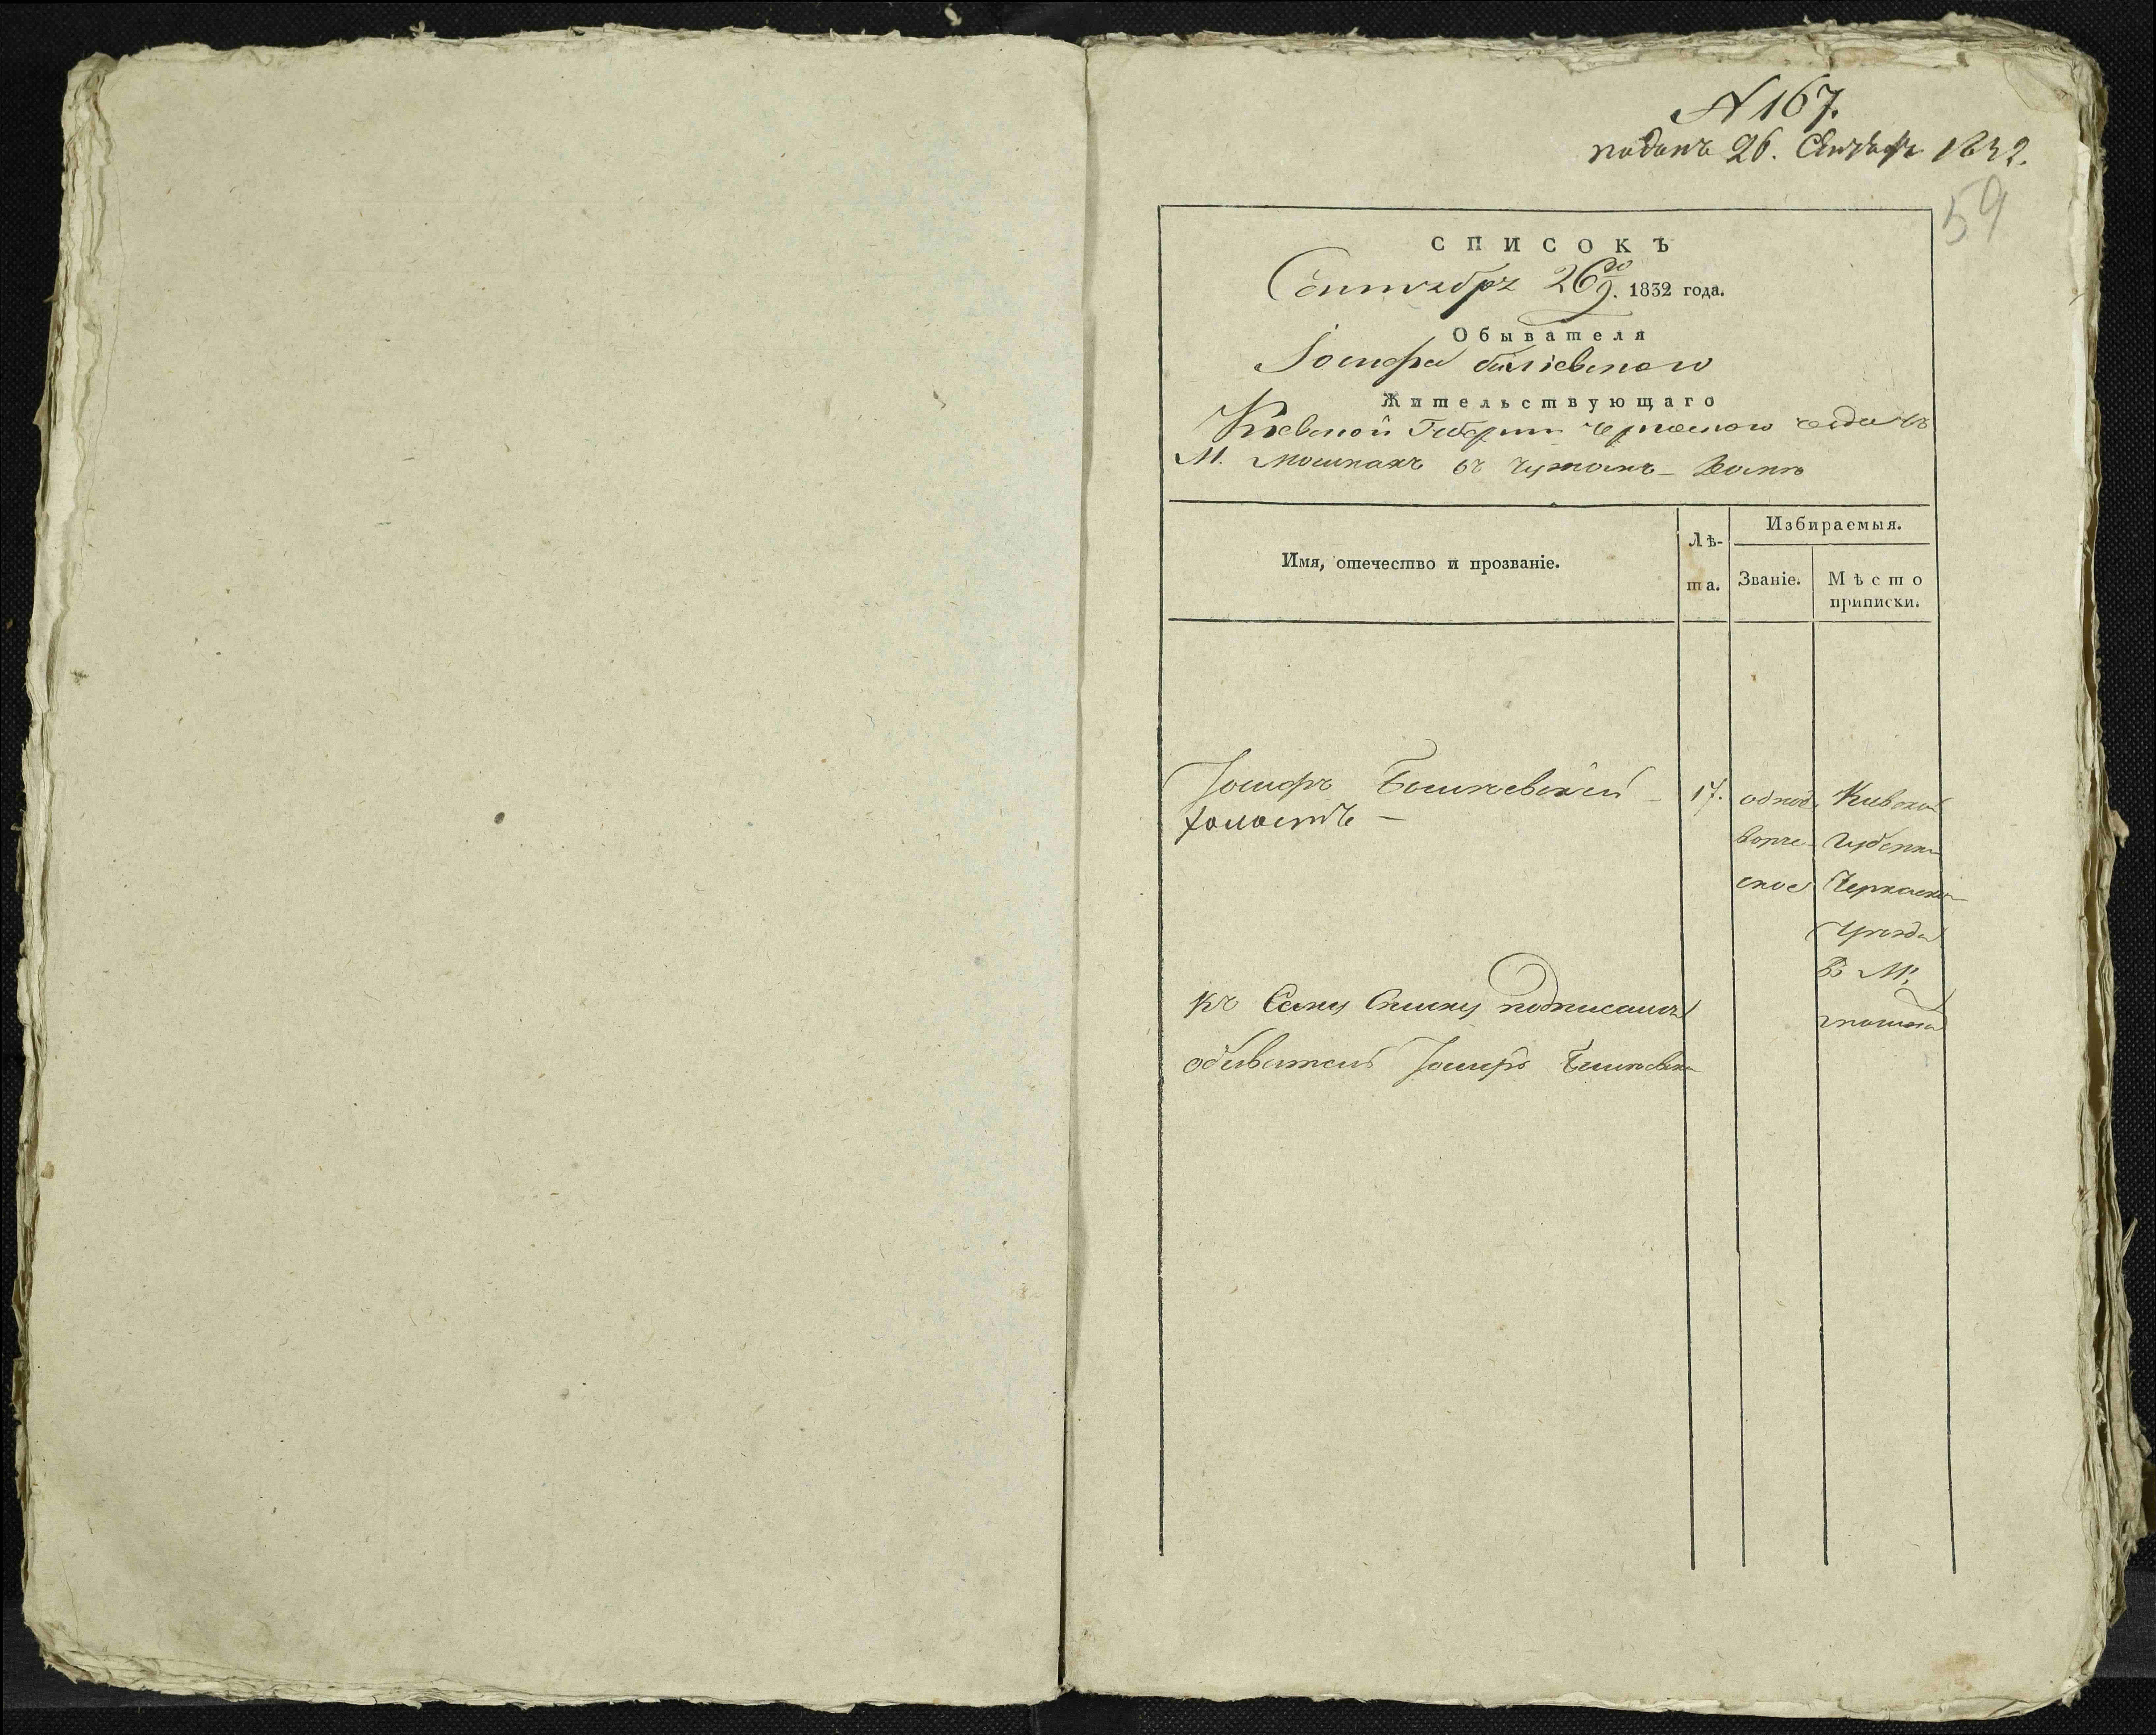 N 167.
поданъ 26. Сентября 1832.
59
СПИСОКЪ
Сентября 26го д. 1832 года.
Обывателя
Іосифа
Жительствующаго
Кіевской Губерніи Черкаского уезда въ
М. Мошнахъ въ
Имя, отечество и прозваніе.
Лѣ-
та.
Избираемыя.
Званіе.
Мѣсто
приписки.
Іосифъ
холостъ —
17.
однод
ворче
ское
Киевской
Губерни
Черкаско
Уезда
В М.
къ Сему Списку подписался
обиватель Іосифъ